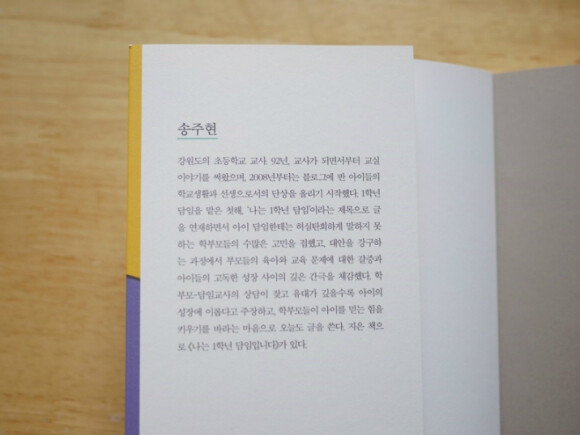 송주현
강원도의 초등학교 교사. 92년, 교사가 되면서부터 교실
이야기를 써왔으며, 2008년부터는 블로그에 반 아이들의
학교생활과 선생으로서의 단상을 올리기 시작했다. 1학년
담임을 맡은 첫해, '나는 1학년 담임'이라는 제목으로 글
을 연재하면서 아이 담임한테는 허심탄회하게 말하지 못
하는 학부모들의 수많은 고민을 접했고, 대안을 강구하
는 과정에서 부모들의 육아와 교육 문제에 대한 갈증과
아이들의 고독한 성장 사이의 깊은 간극을 체감했다. 학
부모-담임교사의 상담이 잦고 유대가 깊을수록 아이의
성장에 이롭다고 주장하고, 학부모들이 아이를 믿는 힘을
키우기를 바라는 마음으로 오늘도 글을 쓴다. 지은 책으
로 《나는 1학년 담임입니다》가 있다.